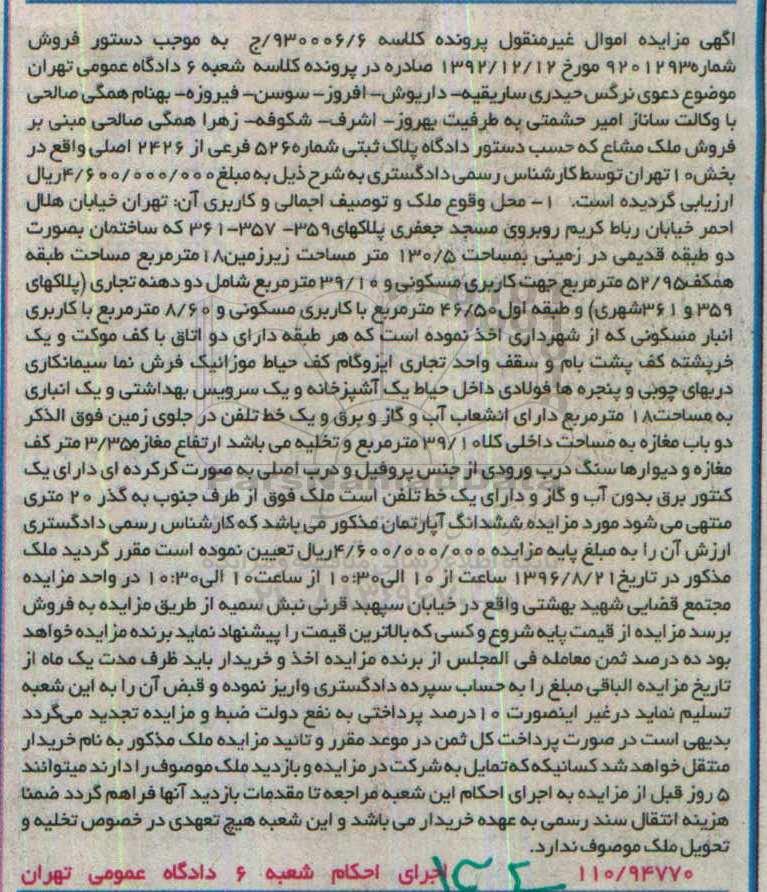 اگهی مزایده اموال غیرمنقول پرونده کلاسه ۹۳۰۰۰۶/۶/ج به موجب دستور فروش
شماره۹۲۰۱۲۹۳ مورخ ۱۳۹۲/۱۲/۱۲ صادره در پرونده کلاسه شعبه ۶ دادگاه عمومی تهران
موضوع دعوی نرگس حیدری ساریقیه- داریوش- افروز- سوسن- فیروزه- بهنام همگی صالحی
با وکالت ساناز امیر حشمتی به طرفیت بهروز- اشرف- شکوفه- زهرا همگی صالحی مبنی بر
فروش ملک مشاع که حسب دستور دادگاه پلاک ثبتی شماره۵۲۶ فرعی از ۲۴۲۶ اصلی واقع در
بخش۱۰تهران توسط کارشناس رسمی دادگستری به شرح ذیل به مبلغ۴/۶۰۰/۰۰۰/۰۰۰ریال
ارزیابی گردیده است. ۱- محل وقوع ملک و توصیف اجمالی و کاربری آن: تهران خیابان هلال
احمر خیابان رباط کریم روبروی مسجد جعفری پلاکهای۳۵۹- ۳۵۷-۳۶۱ که ساختمان بصورت
دو طبقه قدیمی در زمینی بمساحت ۱۳۰/۵ متر مساحت زیرزمین۱۸مترمربع مساحت طبقه
همکف۵۲/۹۵ مترمربع جهت کاربری مسکونی و ۳۹/۱۰ مترمربع شامل دو دهنه تجاری (پلاکهای
۳۵۹ و ۳۶۱شهری) و طبقه اول۴۶/۵۰ مترمربع با کاربری مسکونی و ۸/۶۰ مترمربع با کاربری
انبار مسکونی که از شهرداری اخذ نموده است که هر طبقه دارای دو اتاق با کف موکت و یک
خرپشته کف پشت بام و سقف واحد تجاری ایزوگام کف حیاط موزائیک فرش نما سیمانکاری
دربهای چوبی و پنجره ها فولادی داخل حیاط یک آشپزخانه و یک سرویس بهداشتی و یک انباری
به مساحت۱۸ مترمربع دارای انشعاب آب و گاز و برق و یک خط تلفن در جلوی زمین فوق الذکر
دو باب مغازه به مساحت داخلی کلا۳۹/۱۰ مترمربع و تخلیه می باشد ارتفاع مغازه۳/۳۵ متر کف
مغازه و دیوارها سنگ درب ورودی از جنس پروفیل و درب اصلی به صورت کرکرده ای دارای یک
کنتور برق بدون آب و گاز و دارای یک خط تلفن است ملک فوق از طرف جنوب به گذر ۲۰ متری
منتهی می شود مورد مزایده ششدانگ آپارتمان مذکور می باشد که کارشناس رسمی دادگستری
ارزش آن را به مبلغ پایه مزایده ۴/۶۰۰/۰۰۰/۰۰۰ریال تعیین نموده است مقرر گردید ملک
مذکور در تاریخ۱۳۹۶/۸/۲۱ ساعت از ۱۰ الی۱۰:۳۰ از ساعت۱۰ الی۱۰:۳۰ در واحد مزایده
مجتمع قضایی شهید بهشتی واقع در خیابان سپهبد قرنی نبش سمیه از طریق مزایده به فروش
برسد مزایده از قیمت پایه شروع و کسی که بالاترین قیمت را پیشنهاد نماید برنده مزایده خواهد
بود ده درصد ثمن معامله فی المجلس از برنده مزایده اخذ و خریدار باید ظرف مدت یک ماه از
تاریخ مزایده الباقی مبلغ را به حساب سپرده دادگستری واریز نموده و قبض آن را به این شعبه
تسلیم نماید درغیر اینصورت ۱۰درصد پرداختی به نفع دولت ضبط و مزایده تجدید می‌گردد
بدیهی است در صورت پرداخت کل ثمن در موعد مقرر و تائید مزایده ملک مذکور به نام خریدار
منتقل خواهد شد کسانیکه که تمایل به شرکت در مزایده و بازدید ملک موصوف را دارند میتوانند
۵ روز قبل از مزایده به اجرای احکام این شعبه مراجعه تا مقدمات بازدید آنها فراهم گردد ضمنا
هزینه انتقال سند رسمی به عهده خریدار می باشد و این شعبه هیچ تعهدی در خصوص تخلیه و
تحویل ملک موصوف ندارد.
۱۱۰/۹۴۷۷۰ اجرای احکام شعبه ۶ دادگاه عمومی تهران